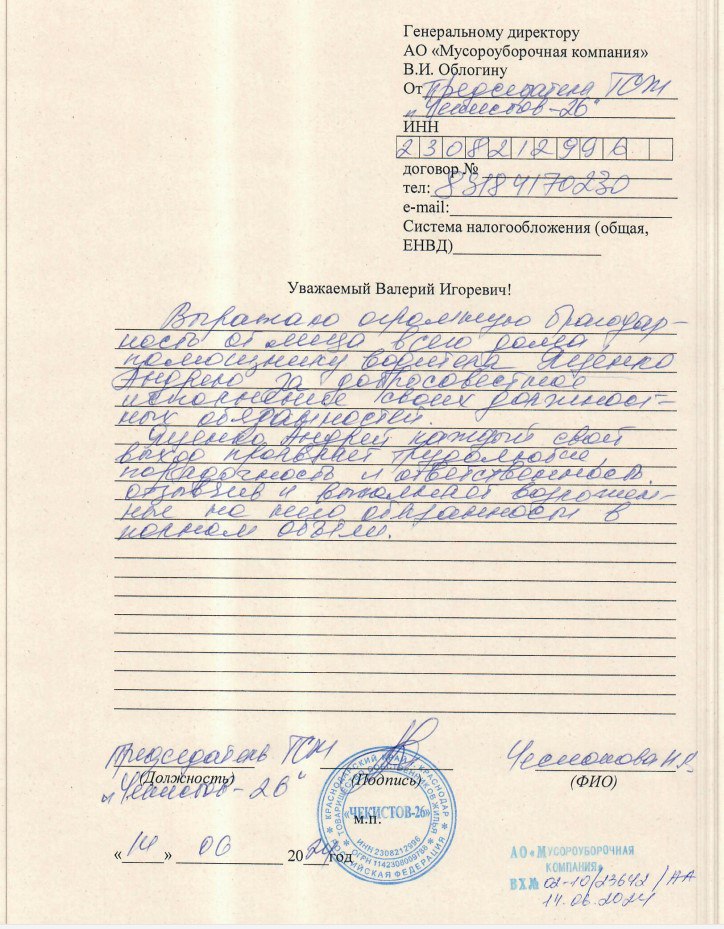 Генеральному директору
АО «Мусороуборочная компания»
В.И. Облогину
От Председателя ТСЖ
"Чекистов-26"
ИНН
2308212996
договор №
тел: 83184170230
e-mail:
Система налогообложения (общая,
ЕНВД)
Уважаемый Валерий Игоревич!
Выражаю огромную благодар-
ность от лица всего дома
помощнику водителя Яценко
Андрею за добросовестное
исполнение своих должност-
ных обязанностей.
Яценко Андрей каждый свой
выход проявляет трудолюбие,
порядочность и ответственность.
отзывчив и выполняет возложен-
ные на него обязанности в
полном объёме.
Председатель ТСЖ
(Должность) (Подпись) (ФИО)
"Чекистов-26"
КРАСНОДАРСКИЙ КРАЙ Г. КРАСНОДАР
ТОВАРИЩЕСТВО СОБСТВЕННИКОВ ЖИЛЬЯ
«ЧЕКИСТОВ-26»
ИНН 2308212996
РОССИЙСКАЯ ФЕДЕРАЦИЯ
м.п.
«14» 06 2024 год
АО «МУСОРОУБОРОЧНАЯ
КОМПАНИЯ»
ВХ.№ 02-10/23642/АА
14.06.2024